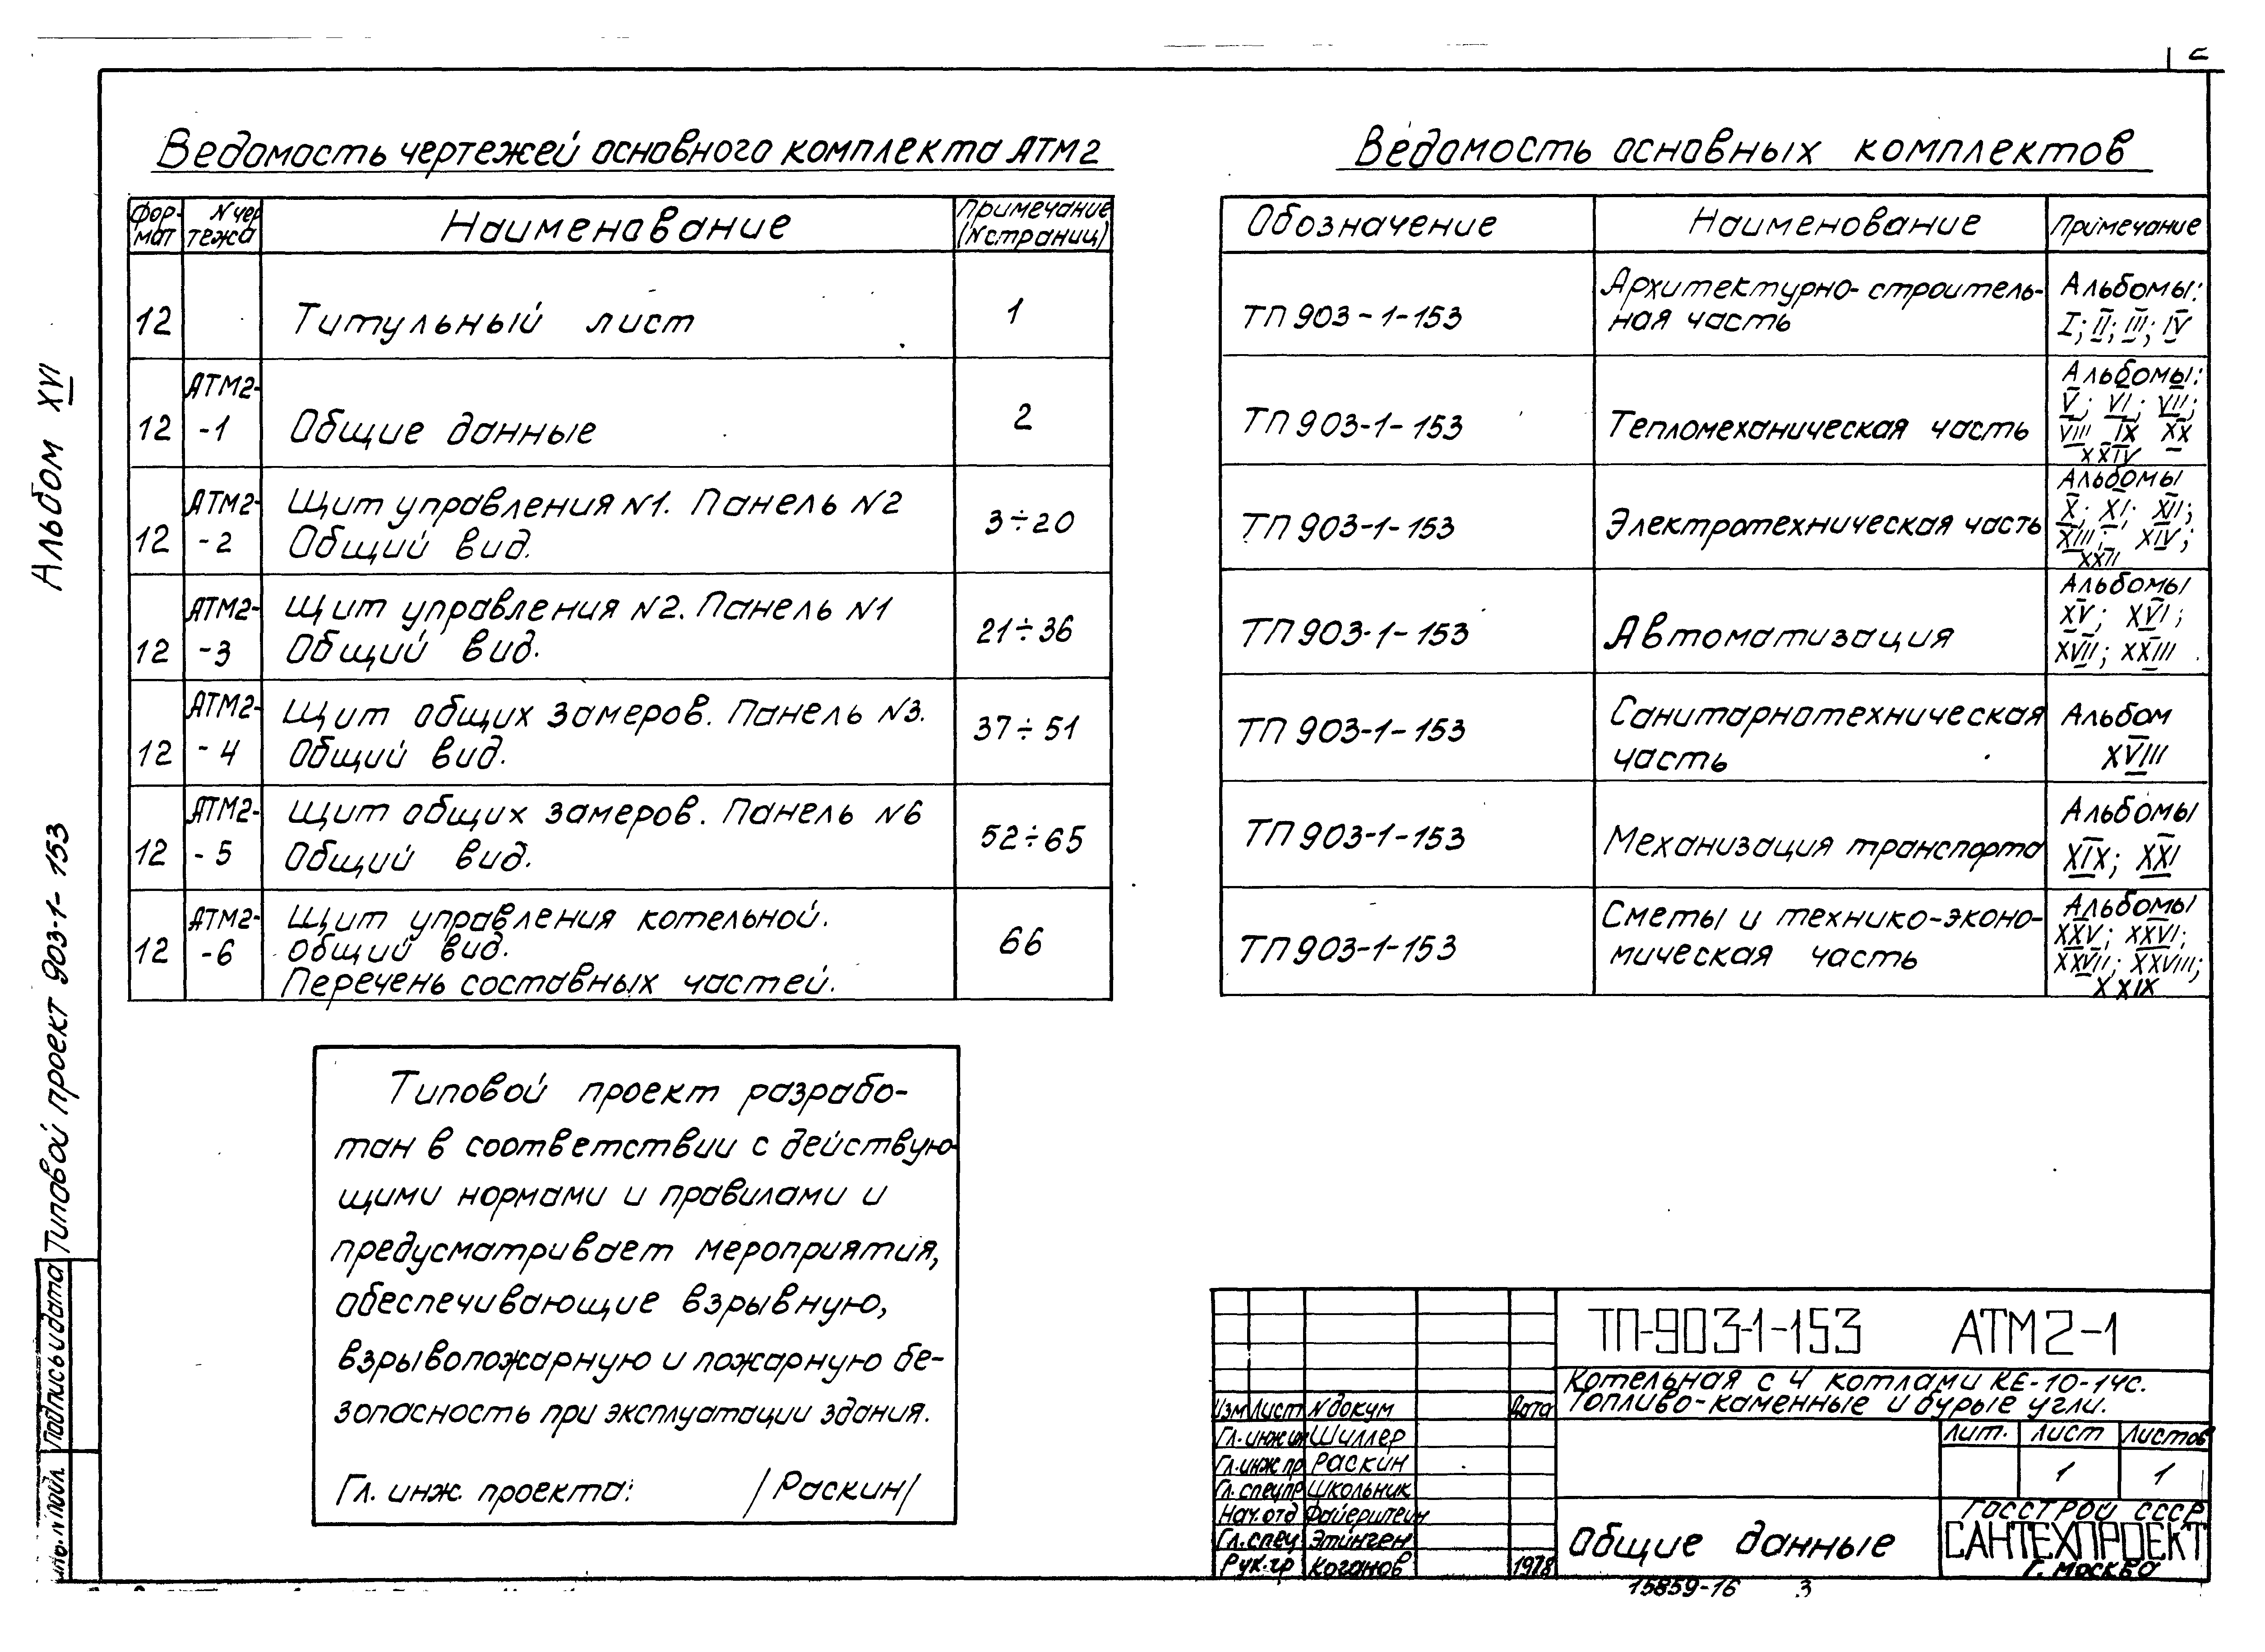 2
Альбом XVI
Типовой проект 903-1-153
Подпись и дата
Ведомость чертежей основного комплекта АТМ2
Фор-
мат
N чер
тежа
Наименование
Примечание
(N страниц)
12
Титульный лист
1
12
АТМ2-
-1
Общие данные
2
12
АТМ2-
-2
Щит управления N1. Панель N2
Общий вид.
3÷20
12
АТМ2-
-3
Щит управления N2. Панель N1
Общий вид.
21÷36
12
АТМ2-
-4
Щит общих замеров. Панель N3.
Общий вид.
37÷51
12
АТМ2-
-5
Щит общих замеров. Панель N6
Общий вид.
52÷65
12
АТМ2-
-6
Щит управления котельной.
общий вид.
Перечень составных частей.
66
Ведомость основных комплектов
Обозначение
Наименование
Примечание
ТП 903-1-153
Архитектурно-строитель-
ная часть
Альбомы:
I; II; III; IV
ТП 903-1-153
Тепломеханическая часть
Альбомы:
V; VI; VII;
VIII IX XX
XXIV
ТП 903-1-153
Электротехническая часть
Альбомы
X; XI; XII;
XIII; XIV;
XXII
ТП 903-1-153
Автоматизация
Альбомы
XV; XVI;
XVII; XXIII
ТП 903-1-153
Санитарнотехническая
часть
Альбом
XVIII
ТП 903-1-153
Механизация транспорта
Альбомы
XIX; XXI
ТП 903-1-153
Сметы и технико-эконо-
мическая часть
Альбомы
XXV; XXVI;
XXVII; XXVIII;
XXIX
Типовой проект разрабо-
тан в соответствии с действую-
щими нормами и правилами и
предусматривает мероприятия,
обеспечивающие взрывную,
взрывопожарную и пожарную бе-
зопасность при эксплуатации здания.
Гл. инж. проекта: /Раскин/
ТП-903-1-153 АТМ2-1
Котельная с 4 котлами КЕ-10-14с.
Топливо-каменные и бурые угли.
Изм Лист N докум Дата
Гл. инж ин Шиллер
Гл. инж пр Раскин
Гл. спец пр Школьник
Нач. отд Файерштейн
Гл. спец Этинген
Рук. гр Коганов 1978
Лит. Лист Листов
1 1
Общие данные
ГОССТРОЙ СССР
САНТЕХПРОЕКТ
г. Москва
15859-16 3